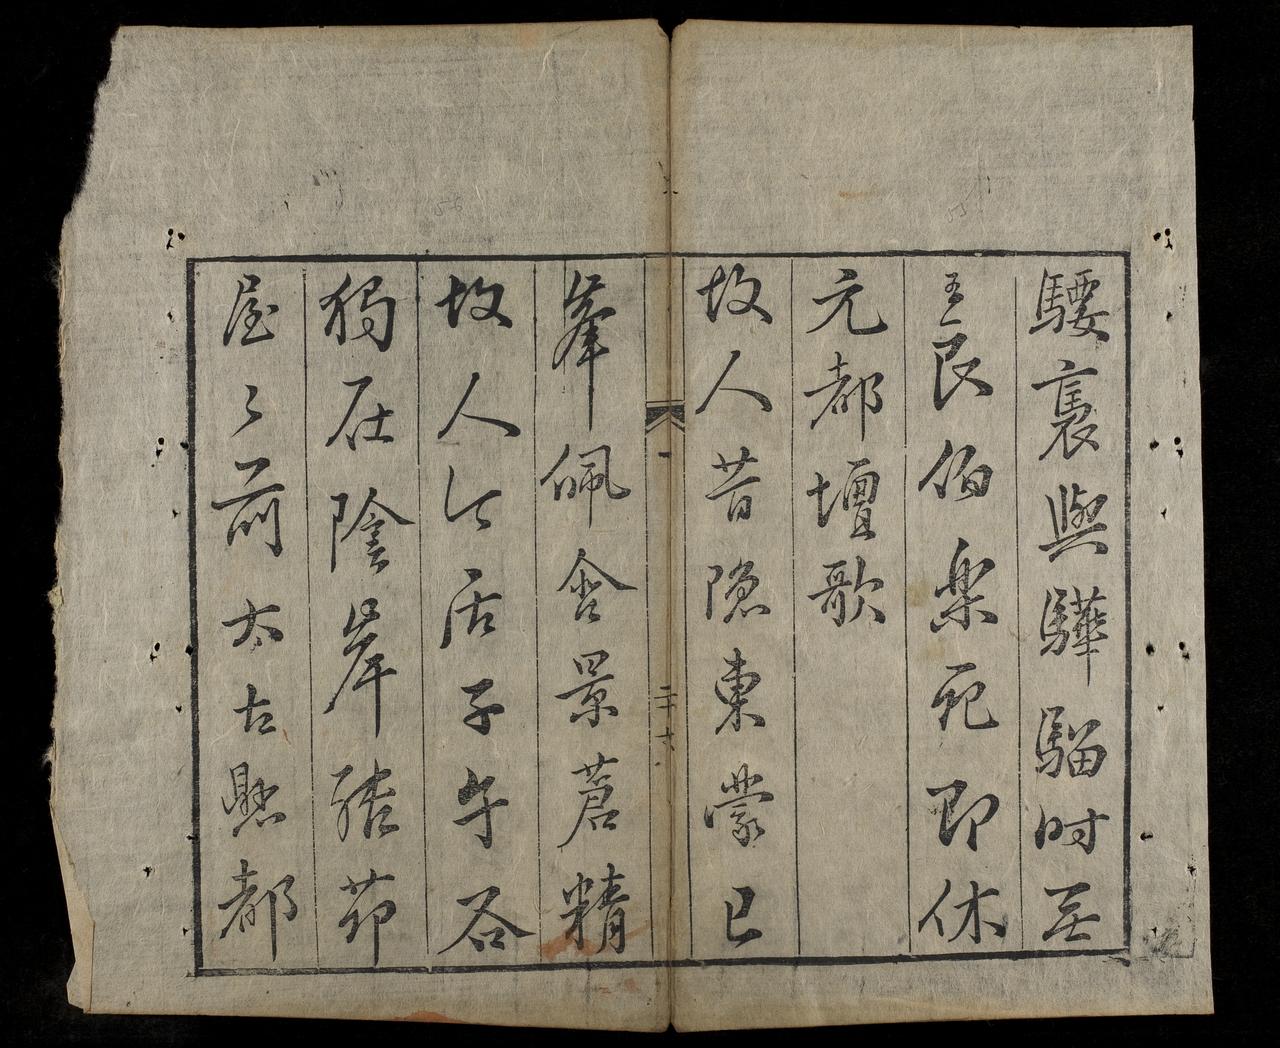 騕褭與驊騮时無
王良伯樂死即休
元都壇歌
故人昔隐東蒙已
一
二十六
峯佩含景蒼精
故人今居子午谷
獨在陰崖結茆
屋々前太古懸都
55
56